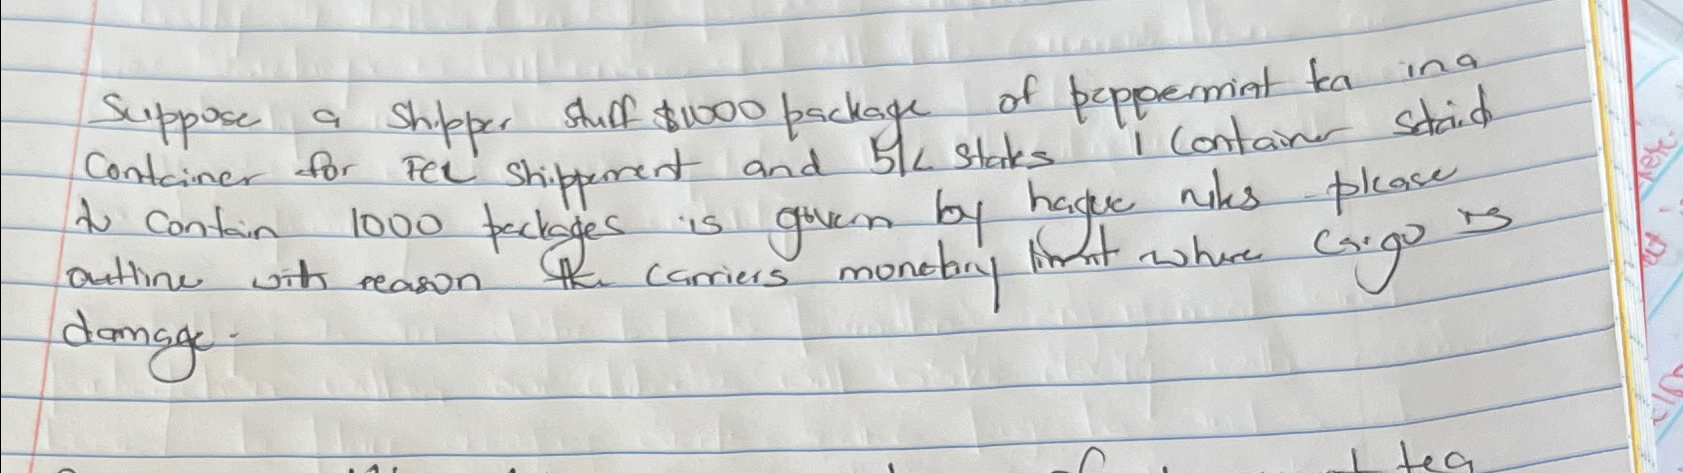 Suppose a Shipper stuff $1000 package of peppermint tea in a
Container for FCL Shippment and B/L states 1 Container said
to Contain 1000 packages is govern by hague rules please
outline with reason the carriers monetary limit where Cargo is
damage.
of tea